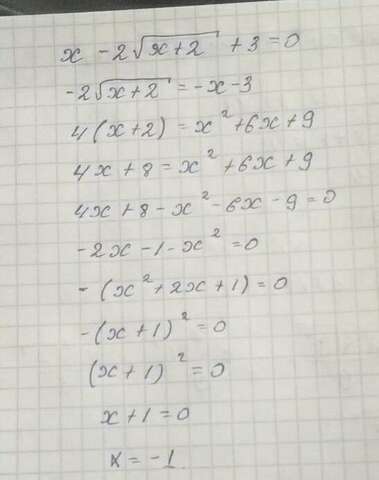 x - 2√(x+2) + 3 = 0
-2√(x+2) = -x-3
4(x+2) = x²+6x+9
4x+8 = x²+6x+9
4x+8-x²-6x-9=0
-2x-1-x²=0
-(x²+2x+1)=0
-(x+1)²=0
(x+1)²=0
x+1=0
x=-1